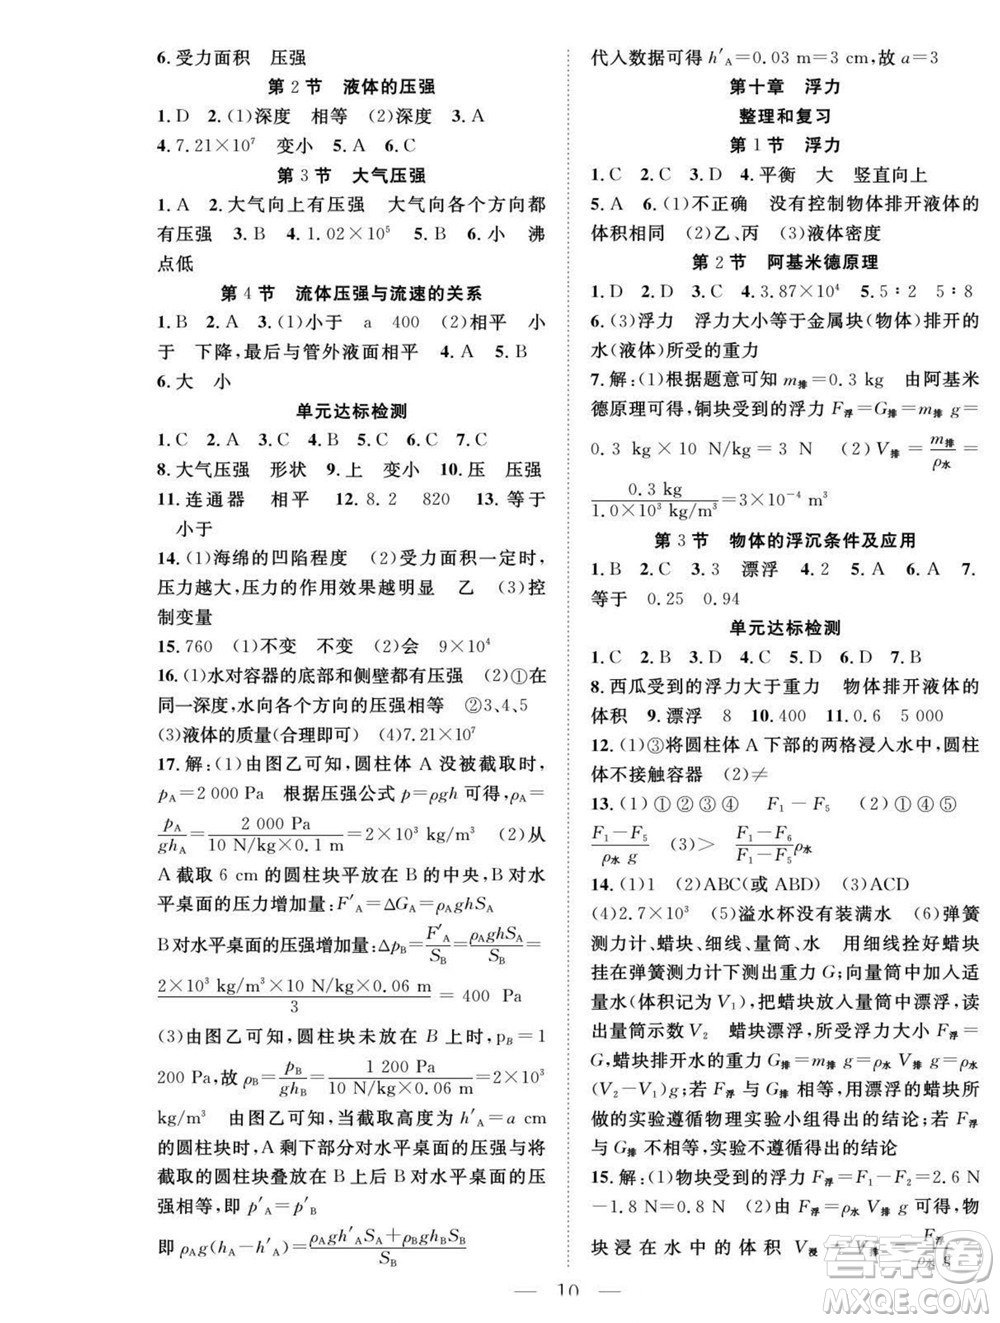 6.受力面积　压强
第 2 节　液体的压强
1.D　2.(1)深度　相等　(2)深度　3.A
4.7.21×10⁷　变小　5.A　6.C
第 3 节　大气压强
1.A　2.大气向上有压强　大气向各个方向都
有压强　3.B　4.1.02×10⁵　5.B　6.小　沸
点低
第 4 节　流体压强与流速的关系
1.B　2.A　3.(1)小于　a　400　(2)相平　小
于　下降,最后与管外液面相平　4.A　5.B
6.大　小
单元达标检测
1.C　2.A　3.D　4.B　5.C　6.C　7.C
8.大气压强　形状　9.上　变小　10.压　压强
11.连通器　相平　12.8.2　820　13.等于
小于
14.(1)海绵的凹陷程度　(2)受力面积一定时,
压力越大,压力的作用效果越明显　乙　(3)控
制变量
15.760　(1)不变　不变　(2)会　9×10⁴
16.(1)水对容器的底部和侧壁都有压强　(2)①在
同一深度,水向各个方向的压强相等　②3、4、5
(3)液体的质量(合理即可)　(4)7.21×10⁷
17.解:(1)由图乙可知,圆柱体 A 没被截取时,
p_A=2 000 Pa　根据压强公式 p=ρgh 可得,ρ_A=
p_A/gh_A=2 000 Pa/(10 N/kg×0.1 m)=2×10³ kg/m³　(2)从
A 截取 6 cm 的圆柱块平放在 B 的中央,B 对水
平桌面的压力增加量:F′_A=ΔG_A=ρ_AghS_A
B 对水平桌面的压强增加量:Δp_B=F′_A/S_B=ρ_AghS_A/S_B=
(2×10³ kg/m³×10 N/kg×0.06 m)/3=400 Pa
(3)由图乙可知,圆柱块未放在 B 上时,p_B=1
200 Pa,故 ρ_B=p_B/gh_B=1 200 Pa/(10 N/kg×0.06 m)=2×10³
kg/m³　由图乙可知,当截取高度为 h′_A=a cm
的圆柱块时,A 剩下部分对水平桌面的压强与将
截取的圆柱块叠放在 B 上时 B 对水平桌面的压
强相等,即 p′_A=p′_B
即 ρ_Ag(h_A-h′_A)=(ρ_Agh′_AS_A+ρ_Bgh_BS_B)/S_B
代入数据可得 h′_A=0.03 m=3 cm,故 a=3
第十章　浮力
整理和复习
第 1 节　浮力
1.C　2.C　3.D　4.平衡　大　竖直向上
5.A　6.(1)不正确　没有控制物体排开液体的
体积相同　(2)乙、丙　(3)液体密度
第 2 节　阿基米德原理
1.D　2.D　3.C　4.3.87×10⁴　5.5∶2　5∶8
6.(3)浮力　浮力大小等于金属块(物体)排开的
水(液体)所受的重力
7.解:(1)根据题意可知 m排=0.3 kg　由阿基米
德原理可得,铜块受到的浮力 F浮=G排=m排 g=
0.3 kg×10 N/kg=3 N　(2)V排=m排/ρ水=
0.3 kg/(1.0×10³ kg/m³)=3×10⁻⁴ m³
第 3 节　物体的浮沉条件及应用
1.B　2.C　3.3　漂浮　4.2　5.A　6.A　7.
等于　0.25　0.94
单元达标检测
1.C　2.B　3.D　4.D　5.A　6.B　7.B
8.西瓜受到的浮力大于重力　物体排开液体的
体积　9.漂浮　8　10.400　11.0.6　5 000
12.(1)③将圆柱体 A 下部的两格浸入水中,圆柱
体不接触容器　(2)≠
13.(1)①②③④　F₁-F₅　(2)①④⑤
(F₁-F₅)/(ρ水 g)　(3)>　(F₁-F₆)/(F₁-F₅)ρ水
14.(1)1　(2)ABC(或 ABD)　(3)ACD
(4)2.7×10³　(5)溢水杯没有装满水　(6)弹簧
测力计、蜡块、细线、量筒、水　用细线拴好蜡块
挂在弹簧测力计下测出重力 G;量筒中加入适
量水(体积记为 V₁),把蜡块放入量筒中漂浮,读
出量筒示数 V₂　蜡块漂浮,所受浮力大小 F浮=
G,蜡块排开水的重力 G排=m排 g=ρ水 V排 g=ρ水
(V₂-V₁)g;若 F浮 与 G排 相等,用漂浮的蜡块所
做的实验遵循物理实验小组得出的结论;若 F浮
与 G排 不相等,实验不遵循得出的结论
15.解:(1)物块受到的浮力 F浮=F₁-F₂=2.6 N
-1.8 N=0.8 N　(2)由 F浮=ρ水 V排 g 可得,物
块浸在水中的体积 V浸=V排=F浮/(ρ水 g)=
— 10 —
答案圈
MXQE.COM